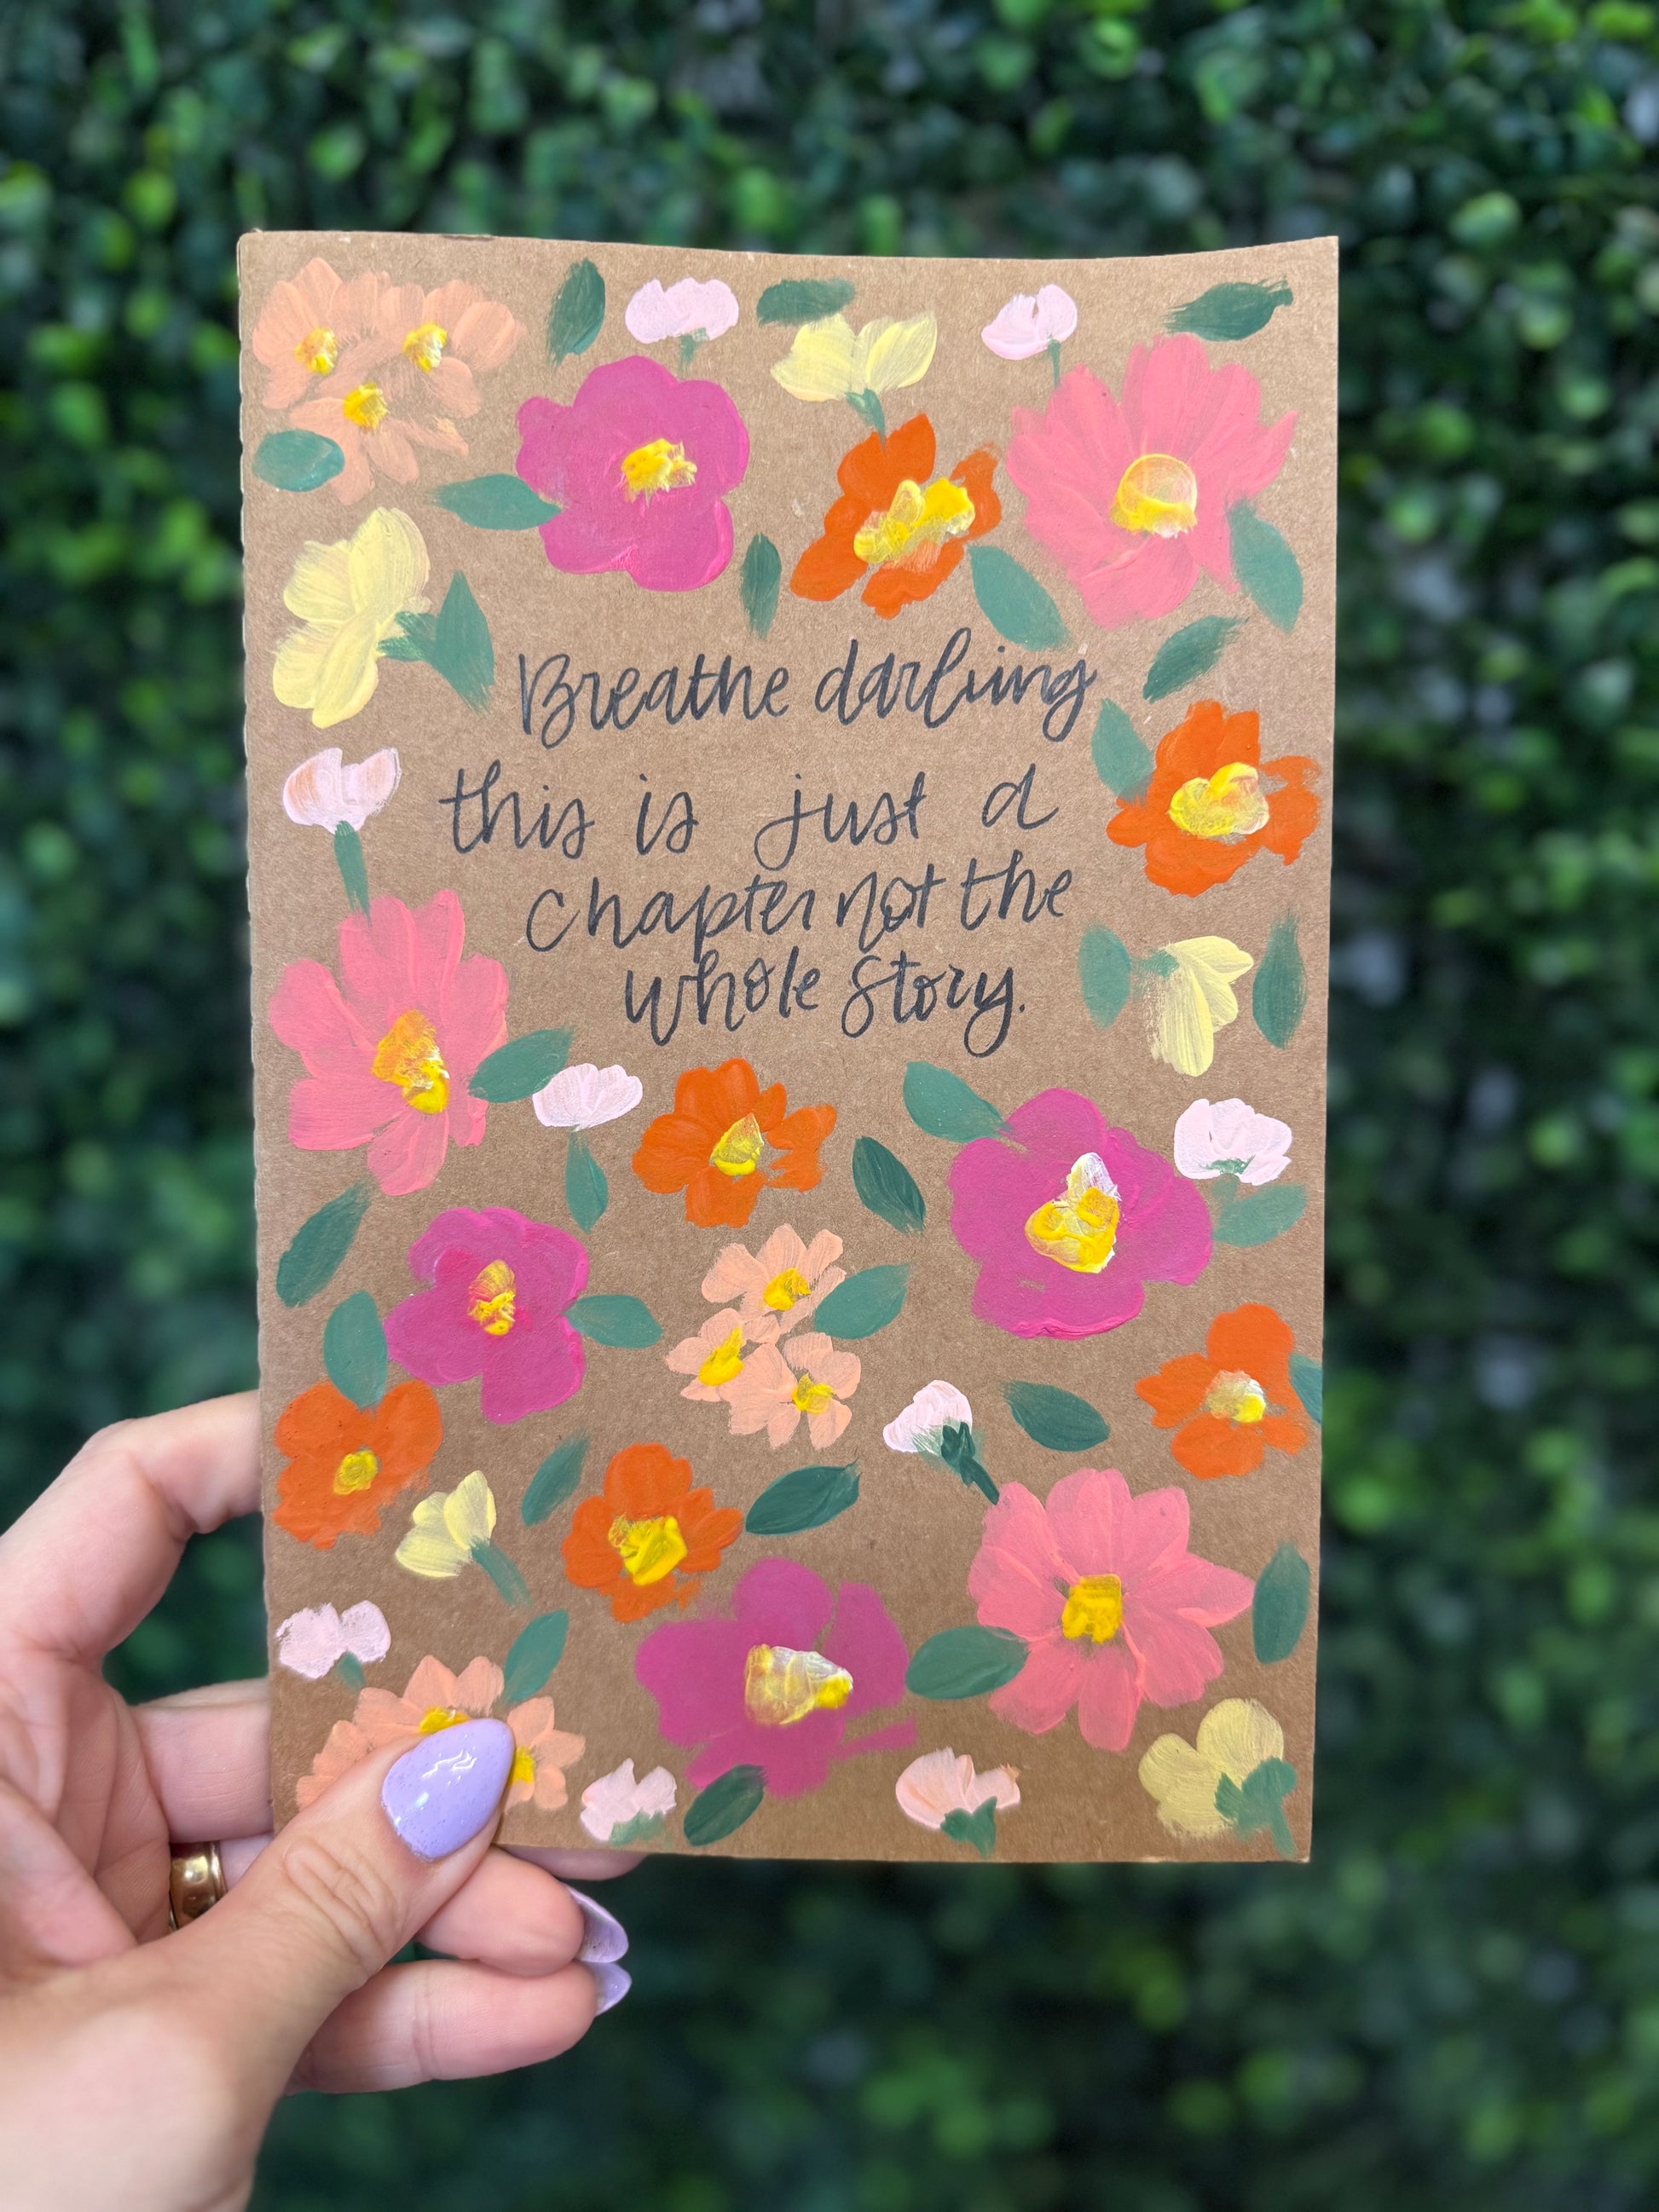 Breathe darling
this is just a
chapter not the
whole story.